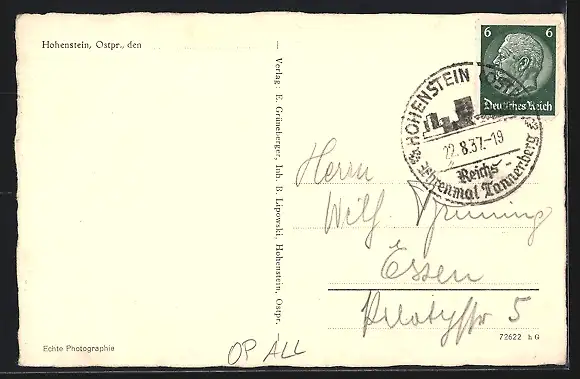 Hohenstein, Ostpr., den
— Verlag: E. Grüneberger, Inh. B. Lipowski, Hohenstein, Ostpr.
6 6
Deutsches Reich
HOHENSTEIN (OSTPR
22.8.37.-19
Reichs-
Ehrenmal Tannenberg
Herrn
Wilh.
Essen
Pilotystr 5
72622 h G
Echte Photographie
OP ALL